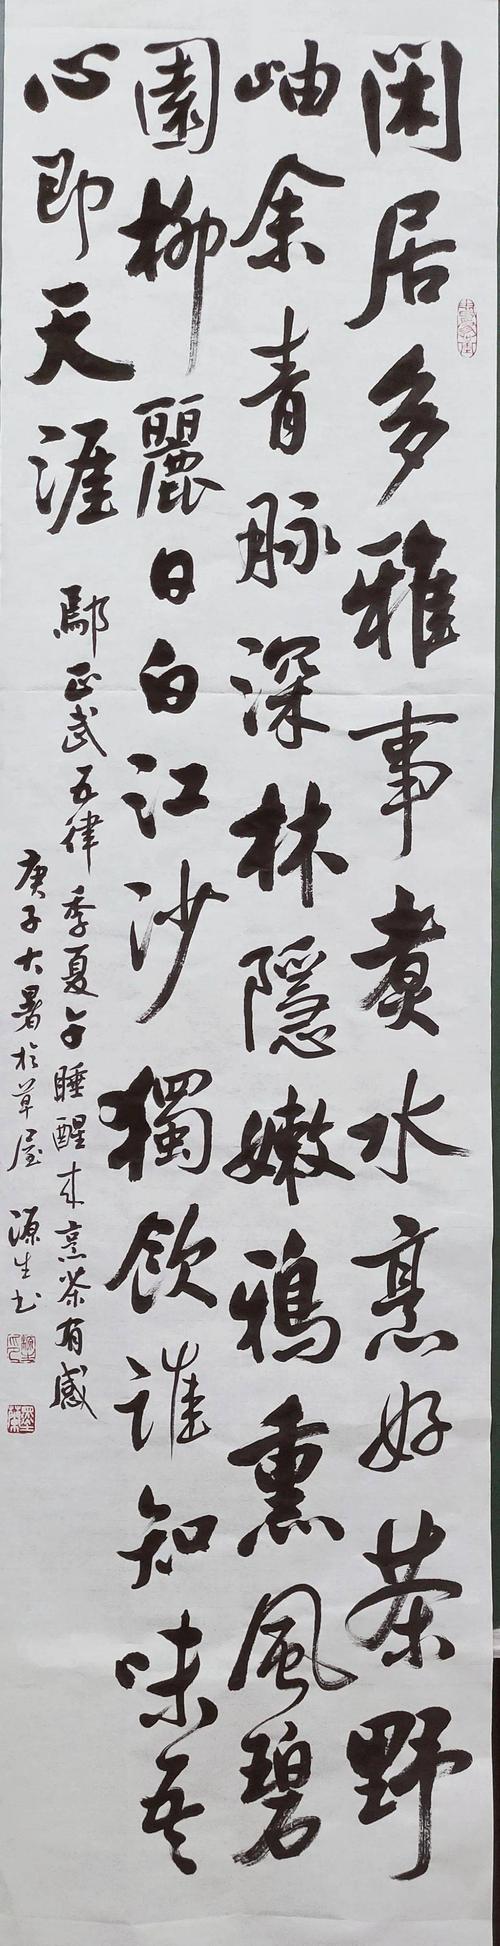 閑居多雅事煮水烹好茶野
岫余青脉深林隐嫩鴉熏風碧
園柳麗日白江沙獨飲誰知味吾
心即天涯
鄢正武五律季夏午睡醒来烹茶有感
庚子大暑於草屋源生书